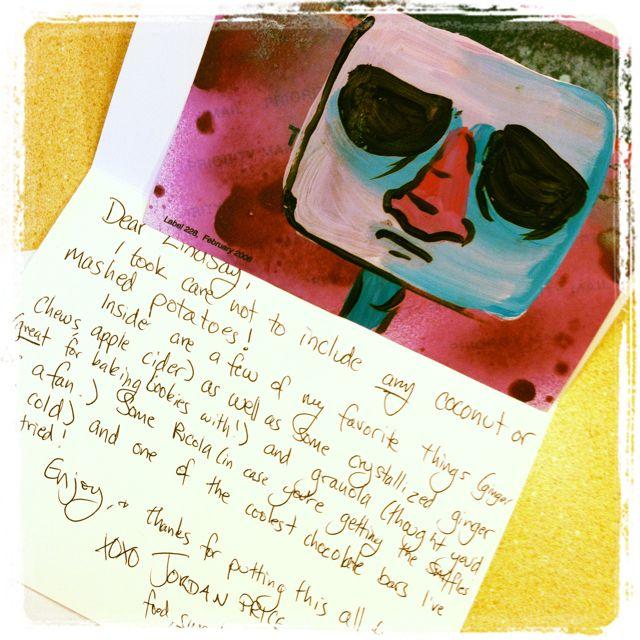 Label 228, February 2008
Dear Lindsay,
I took care not to include any coconut or
mashed potatoes!
Inside are a few of my favorite things (ginger
chews, apple cider) as well as some crystallized ginger
(great for baking cookies with!) and granola (thought you'd
a fan.) Some Ricola (in case you're getting the sniffles
cold) and one of the coolest chocolate bars I've
tried!
Enjoy, thanks for putting this all
XOXO JORDAN
food,
PRIORITY
MAIL